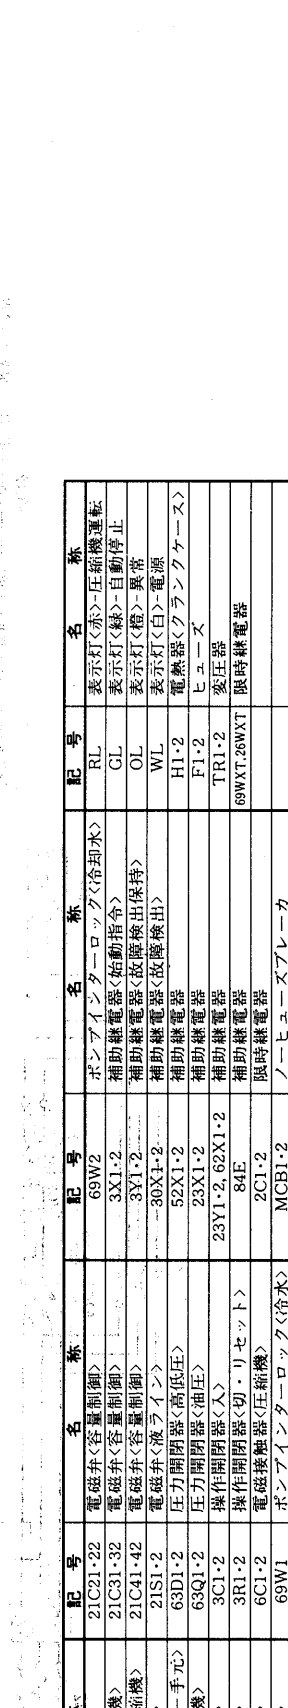 記 号 名 称 記 号 名 称 記 号 名 称
21C21・22 電磁弁<容量制御> 69W2 ポンプインターロック<冷却水> RL 表示灯<赤>-圧縮機運転
21C31・32 電磁弁<容量制御> 3X1・2 補助継電器<始動指令> GL 表示灯<緑>-自動停止
21C41・42 電磁弁<容量制御> 3Y1・2 補助継電器<故障検出保持> OL 表示灯<橙>-異常
21S1・2 電磁弁<液ライン> 30X1・2 補助継電器<故障検出> WL 表示灯<白>-電源
63D1・2 圧力開閉器<高低圧> 52X1・2 補助継電器 H1・2 電熱器<クランクケース>
63Q1・2 圧力開閉器<油圧> 23X1・2 補助継電器 F1・2 ヒューズ
3C1・2 操作開閉器<入> 23Y1・2, 62X1・2 補助継電器 TR1・2 変圧器
3R1・2 操作開閉器<切・リセット> 84E 補助継電器 69WXT.26WXT 限時継電器
6C1・2 電磁接触器<圧縮機> 2C1・2 限時継電器
69W1 ポンプインターロック<冷水> MCB1・2 ノーヒューズブレーカ